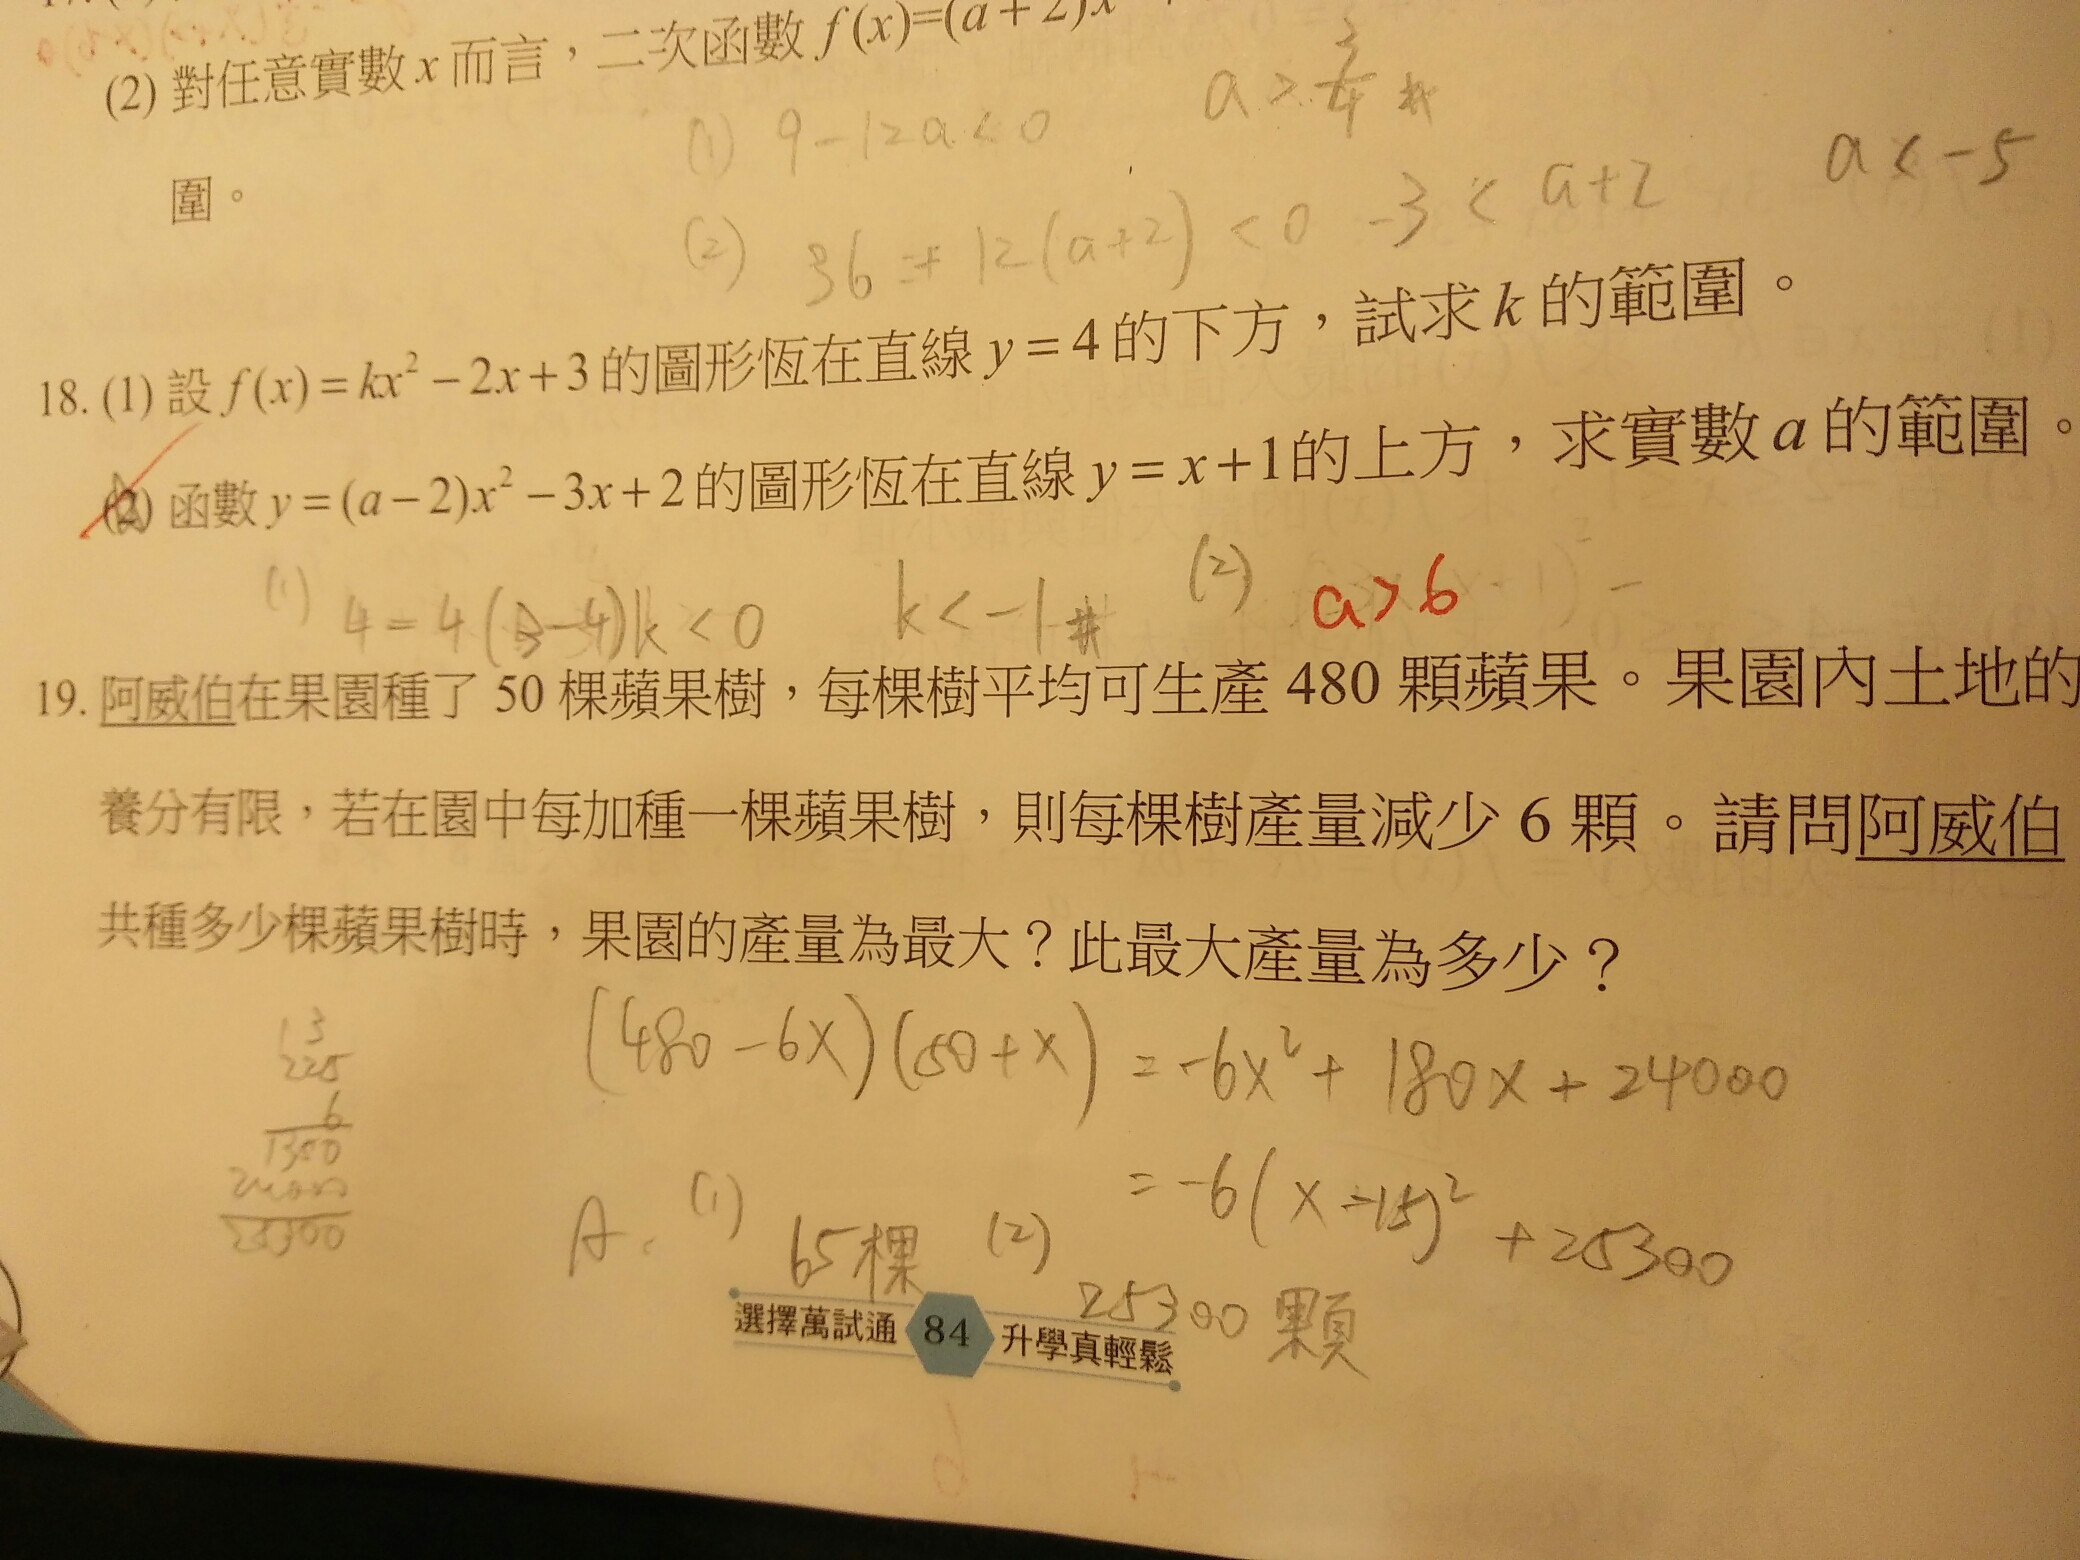 (2) 對任意實數 x 而言，二次函數 f(x)=(a+2)x
a > 3/4 #
(1) 9-12a<0
圍。
a < -5
(2) 36 + 12(a+2) < 0 -3 < a+2
18. (1) 設 f(x) = kx² - 2x + 3 的圖形恆在直線 y = 4 的下方，試求 k 的範圍。
(2) 函數 y = (a-2)x² - 3x + 2 的圖形恆在直線 y = x+1 的上方，求實數 a 的範圍。
(1) 4 - 4(3-4)k < 0 k < -1 # (2) a > 6
19. 阿威伯在果園種了 50 棵蘋果樹，每棵樹平均可生產 480 顆蘋果。果園內土地的
養分有限，若在園中每加種一棵蘋果樹，則每棵樹產量減少 6 顆。請問阿威伯
共種多少棵蘋果樹時，果園的產量為最大？此最大產量為多少？
(480-6x)(50+x) = -6x² + 180x + 24000
= -6(x-15)² + 25300
13
225
6
1350
24000
25300
A. (1) 65棵 (2) 25300 顆
選擇萬試通 84 升學真輕鬆